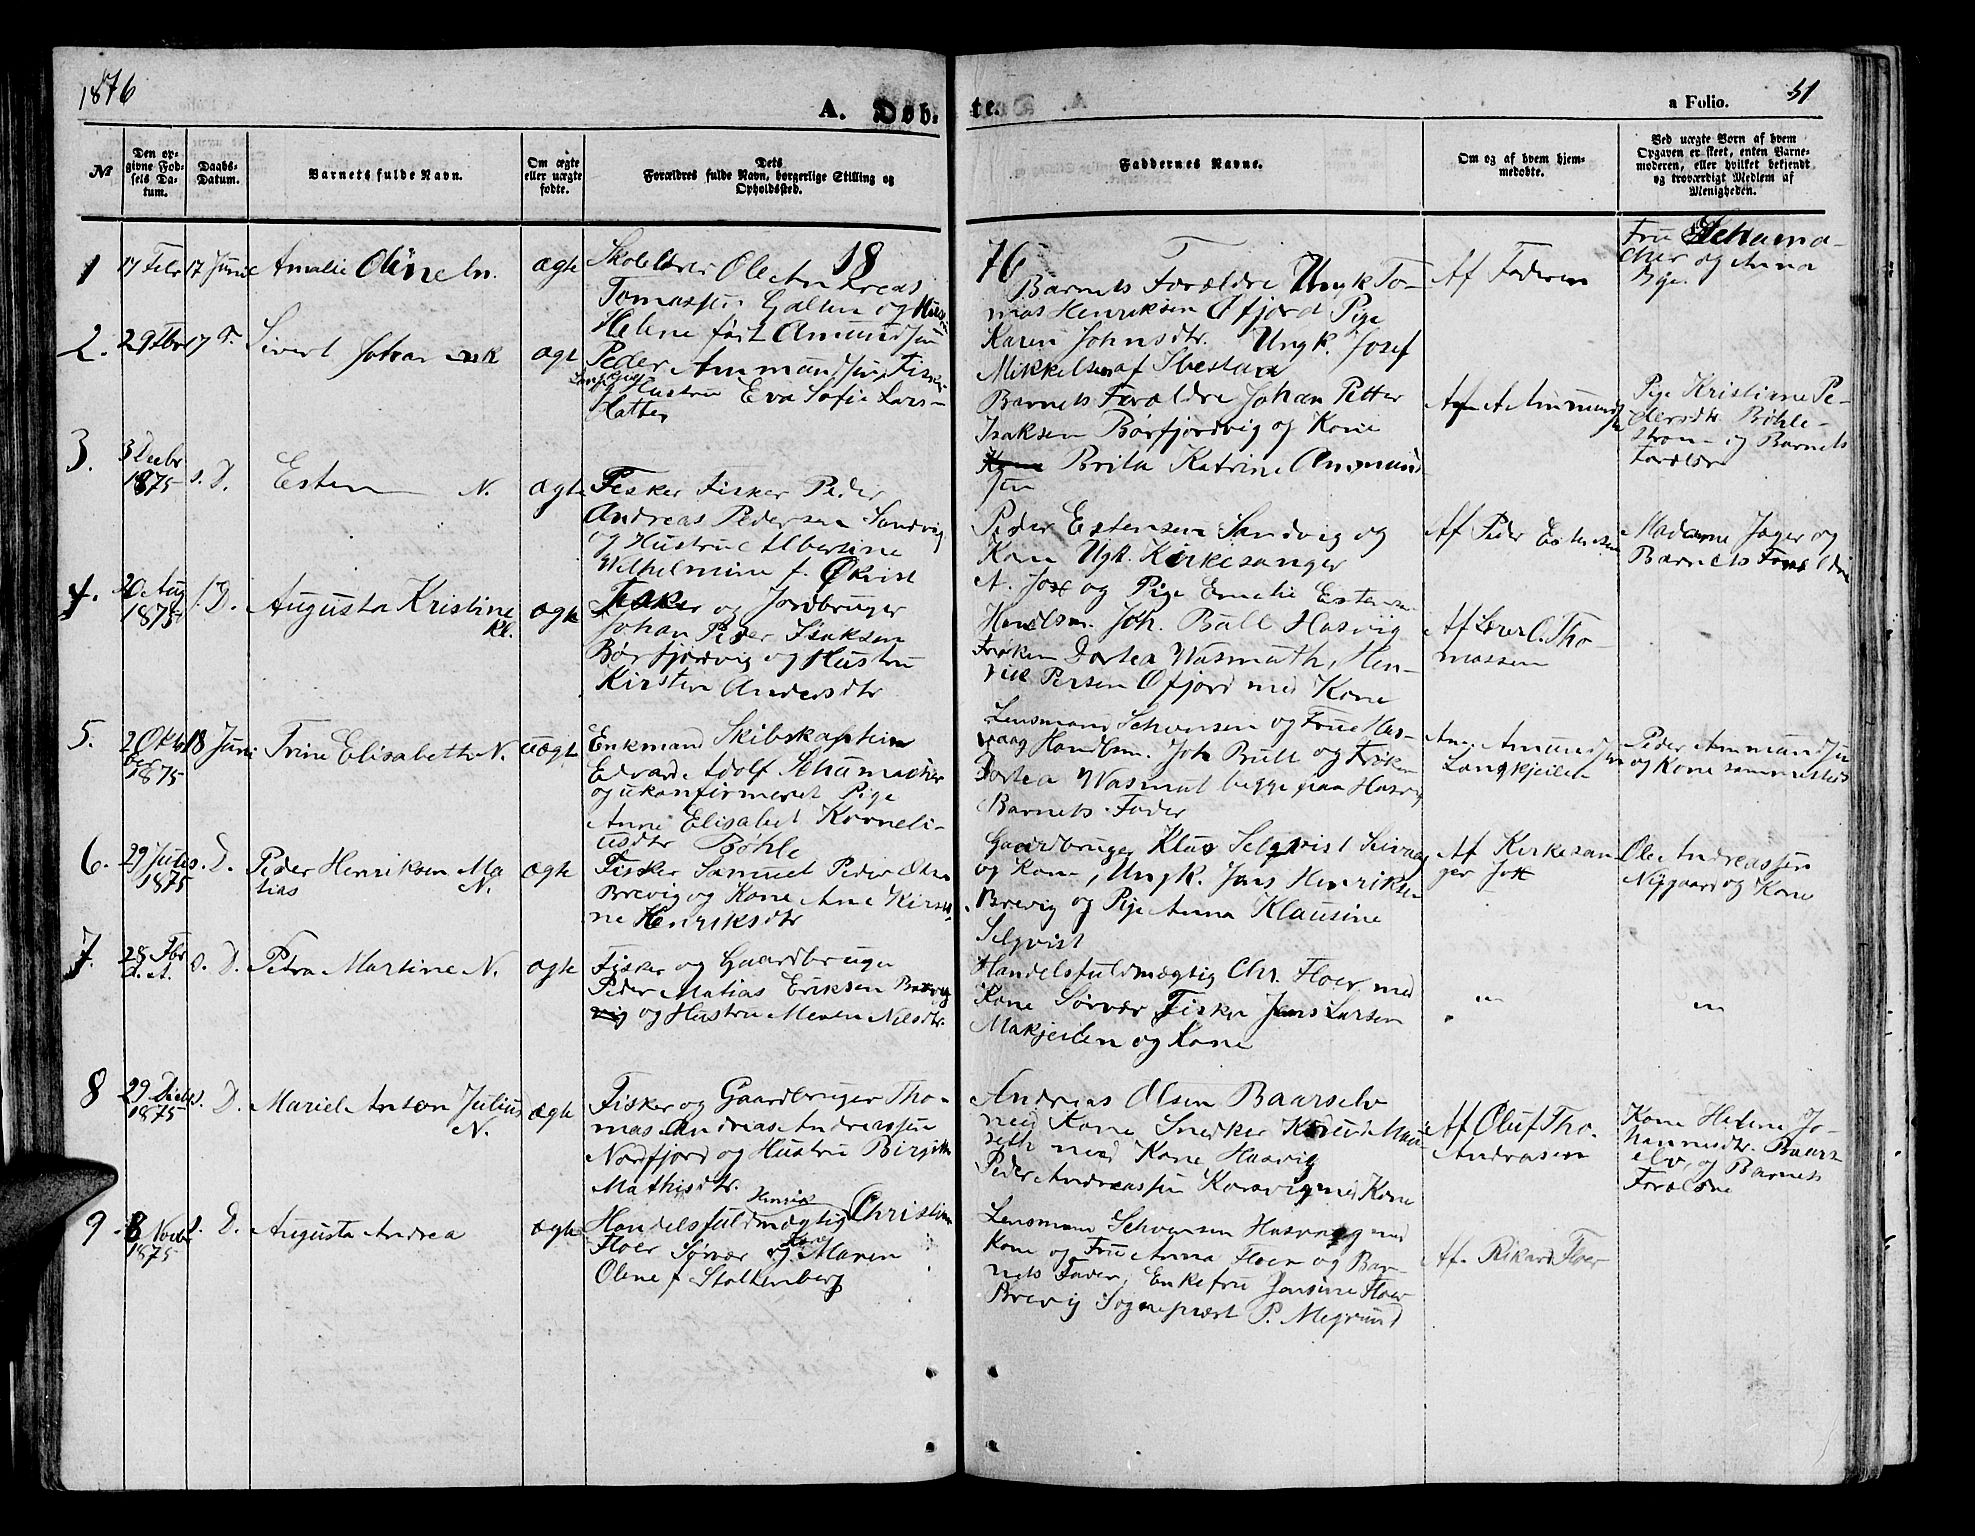 1876
A. Døb-
te.
a Folio.
51
No
Den op-
givne Fød-
sels Da-
tum.
Daabs-
Datum.
Barnets fulde Navn.
Om ægte
eller uægte
fødte.
Dets
Forældres fulde Navn, borgerlige Stilling og
Opholdssted.
Faddernes Navne.
Om og af hvem hjem-
medøbte.
Ved uægte Børn af hvem
Opgaven er skeet, enten Barne-
moderen, eller hvilket bekjendt
og troværdigt Medlem af
Menigheden.
1876
1
17 Febr
17 Juni
Amalie Oline
ægte
Skolelærer Ole Andreas
Tomassen Galten og Hustru
Helene født Amundsen
Barnets Forældre Ungk To-
mas Henriksen Øfjord Pige
Karen Johnsdtr. Ungk. Josef
Mikkelsen af Ibestad
Af Faderen
Fru Schuma-
cher og Anna
Bye.
2.
29 Fbr
17 D.
Sivert Johan
ægte
Peder Ammundsen, Fisker
Langkjeilen
og Hustru Eva Sofie Lars-
datter
Barnets Forældre Johan Petter
Isaksen Børfjordvig og Kone
Brita Katrine Ammund
sen
A Ammundsen
Pige Kristine Pe-
dersdtr Bøhle-
strøm og Barnets
Forældre
3.
3 Decbr
1875
s. D.
Esten N.
ægte
Fisker Fisker Peder
Andreas Pedersen Sandvig
og Hustru Albertine
Wilhelmine f. Økvist
Peder Estensen Sandvig og
Kone Ugk. Kirkesanger
N. Jox og Pige Emelie Estensen
Af Peder Estensen
Madame Jager og
Barnets Forældre
4.
20 Aug
1875
s. D.
Augusta Kristine
kl.
ægte
Fisker og Jordbruger
Johan Peder Isaksen
Børfjordvig og Hustru
Kirsten Andersdtr
Handlsm. Joh. Bull Hasvig
Frøken Dortea Wasmuth, Hen-
rik Persen Øfjord med Kone
Af Lærer O. Tho-
massen
5.
2 Oktо-
ber
1875
18 Juni
Trine Elisabeth N.
uægte
Enkmand Skibskaptein
Edvard Adolf Schumacher
og ukonfirmeret Pige
Anne Elisabet Korneli-
usdtr Bøhle
Lensmand Schvensen og Frue Has-
vaag Handlsm. Joh Bull og Frøken
Dortea Wasmut begge paa Hasvig
Barnets Fader
Amundsen
Langkjeilen
Peder Ammundsen
og Kone sammesteds
6.
29 Juli
1875
s. D.
Peder Henriksen Ma
tias N.
ægte
Fisker Samuel Peder Olsen
Brevig og Kone Ane Kirsti-
ne Henriksdtr
Gaardbruger Klas Selqvist
og Kone, Ungk. Jens Henriksen
Brevig og Pige Anna Klausine
Selqvist
Af Kirkesan-
ger Jox
Ole Andreassen
Nygaard og Kone
7.
28 Fbr
d. A.
s. D.
Petra Martine N.
ægte
Fisker og Gaardbruger
Peder Matias Eriksen Brevig
og Hustru Maren Nilsdtr.
Handelsfuldmægtig Chr. Floer med
Kone Sørvær Fisker Jens Larsen
Makjeilen og Kone
"
"
8
29 Decbr
1875
s. D.
Mariel Anton Julius
N.
ægte
Fisker og Gaardbruger Tho-
mas Andreas Andreassen
Nordfjord og Hustru Birgitte
Mathisdtr.
Andreas Olsen Baarselv
med Kone Snedker
med Kone Hasvig
Peder Andreassen Korsvig med Kone
Af Oluf Tho.
Andrasen
Kone Helene Jo-
hannesdtr. Baars-
elv, og Barnets
Forældre
9.
8 Novbr
1875
s. D.
Augusta Andrea
ægte
Handelsfuldmægtig Christian
Floer Sørvær og Kone Maren
Oline f Stoltenberg
Lensmand Schvensen Hasvaag med
Kone og Frue Anna Floer og Bar-
nets Fader, Enkefru Jensine Floer
Brevig Sogneprest P. Megrund
Af Rikard Floer